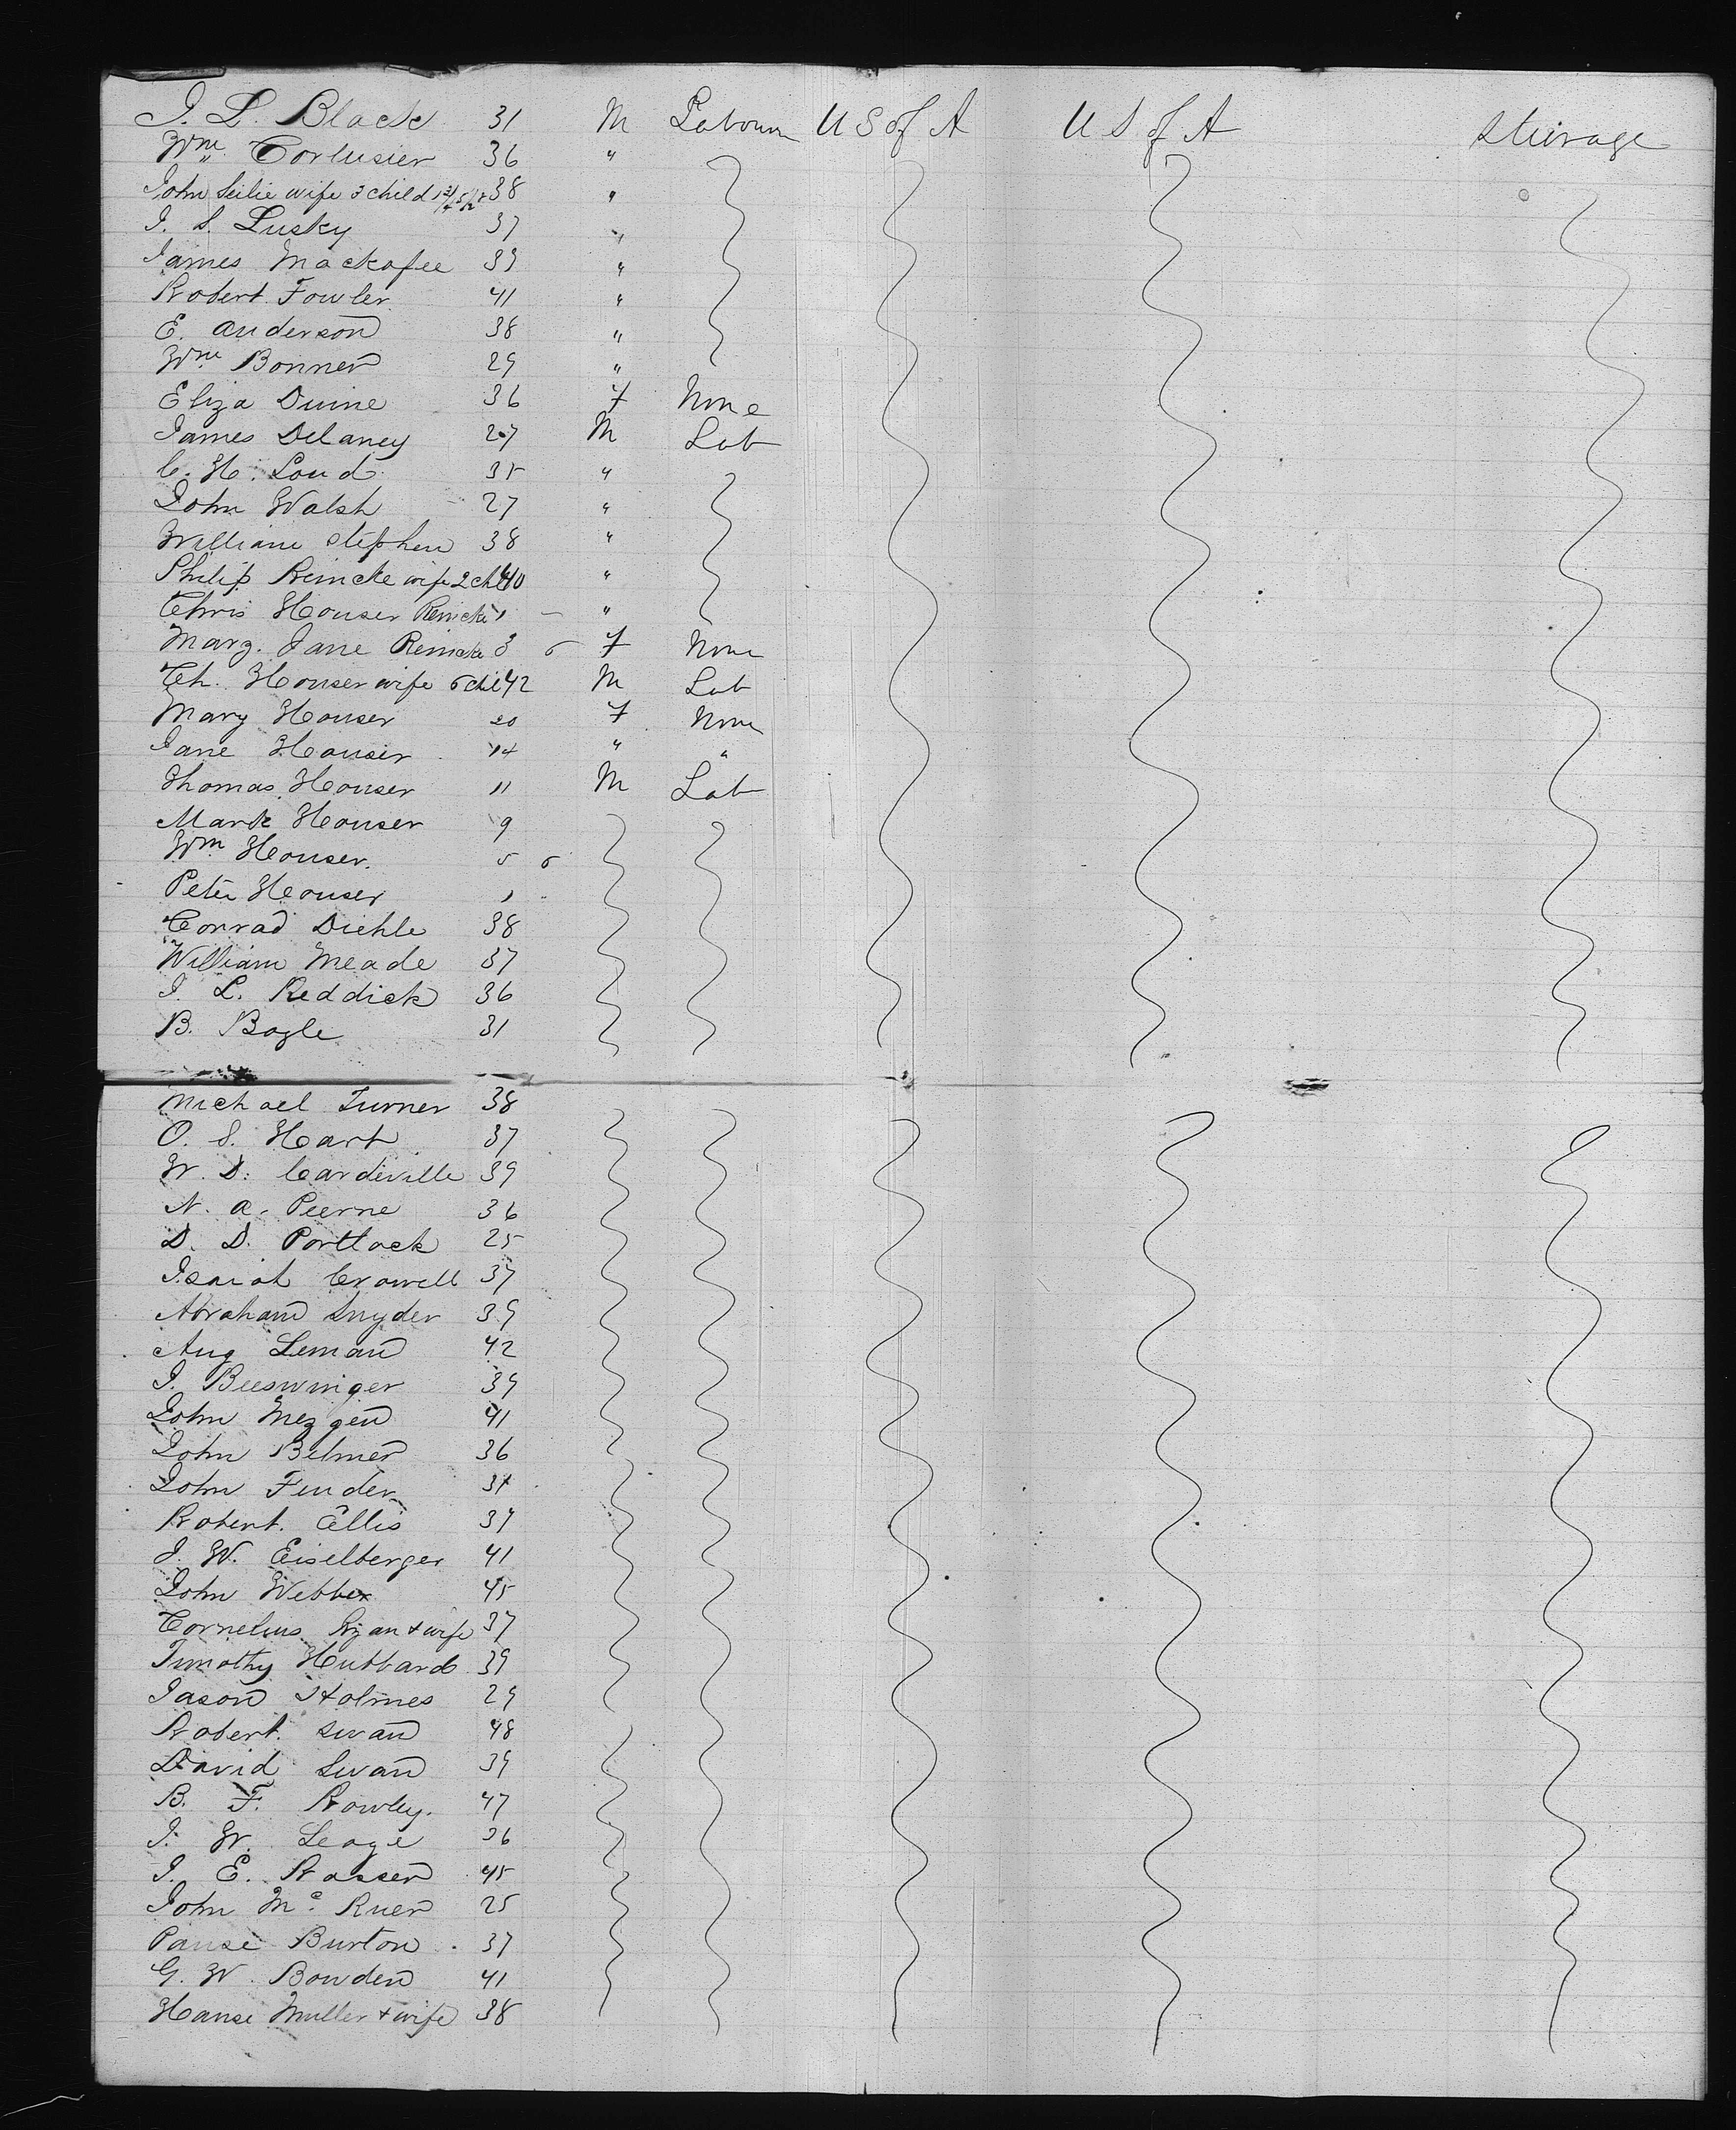 J. L. Black 31 M Labourer U S of A U S of A Steirage
Wm Corlusier 36 "
John Seilie wife 3 child 38 "
J. S. Lusky 37 "
James Mackafee 39 "
Robert Fowler 41 "
E. Anderson 38 "
Wm Bonner 29 "
Eliza Duine 36 F None
James Delaney 27 M Lab
C. H. Loud 35 "
John Walsh 27 "
William Stephen 38 "
Philip Reincke wife 2 chil 40 "
Chris Houser Reincke 1 "
Marg. Jane Reincke 3 6 F None
Ch. Houser wife 6 chil 42 M Lab
Mary Houser 20 F None
Jane Houser 14 " "
Thomas Houser 11 M Lab
Mark Houser 9
Wm Houser. 5 6
Peter Houser 1
Conrad Diehle 38
William Meade 37
J. L. Reddick 36
B. Bogle 31
Michael Turner 38
O. S. Hart 37
W. D. Cardeville 39
N. A. Peerne 36
D. D. Portlock 25
Isaiah Crowell 37
Abraham Snyder 39
Aug Leman 42
J. Beeswinger 39
John Mezgen 41
John Belmer 36
John Fender 37
Robert. Ellis 37
J. W. Eiselberger 41
John Webber 45
Cornelius Ryan & wife 37
Timothy Hubbard 39
Jason Holmes 29
Robert. Swan 48
David Swan 39
B. F. Rowley. 47
J. W. Leage 36
J. E. Rosser 45
John Mc Ruer 25
Panse Burton. 37
G. W. Bowden 41
Hanse Muller & wife 38